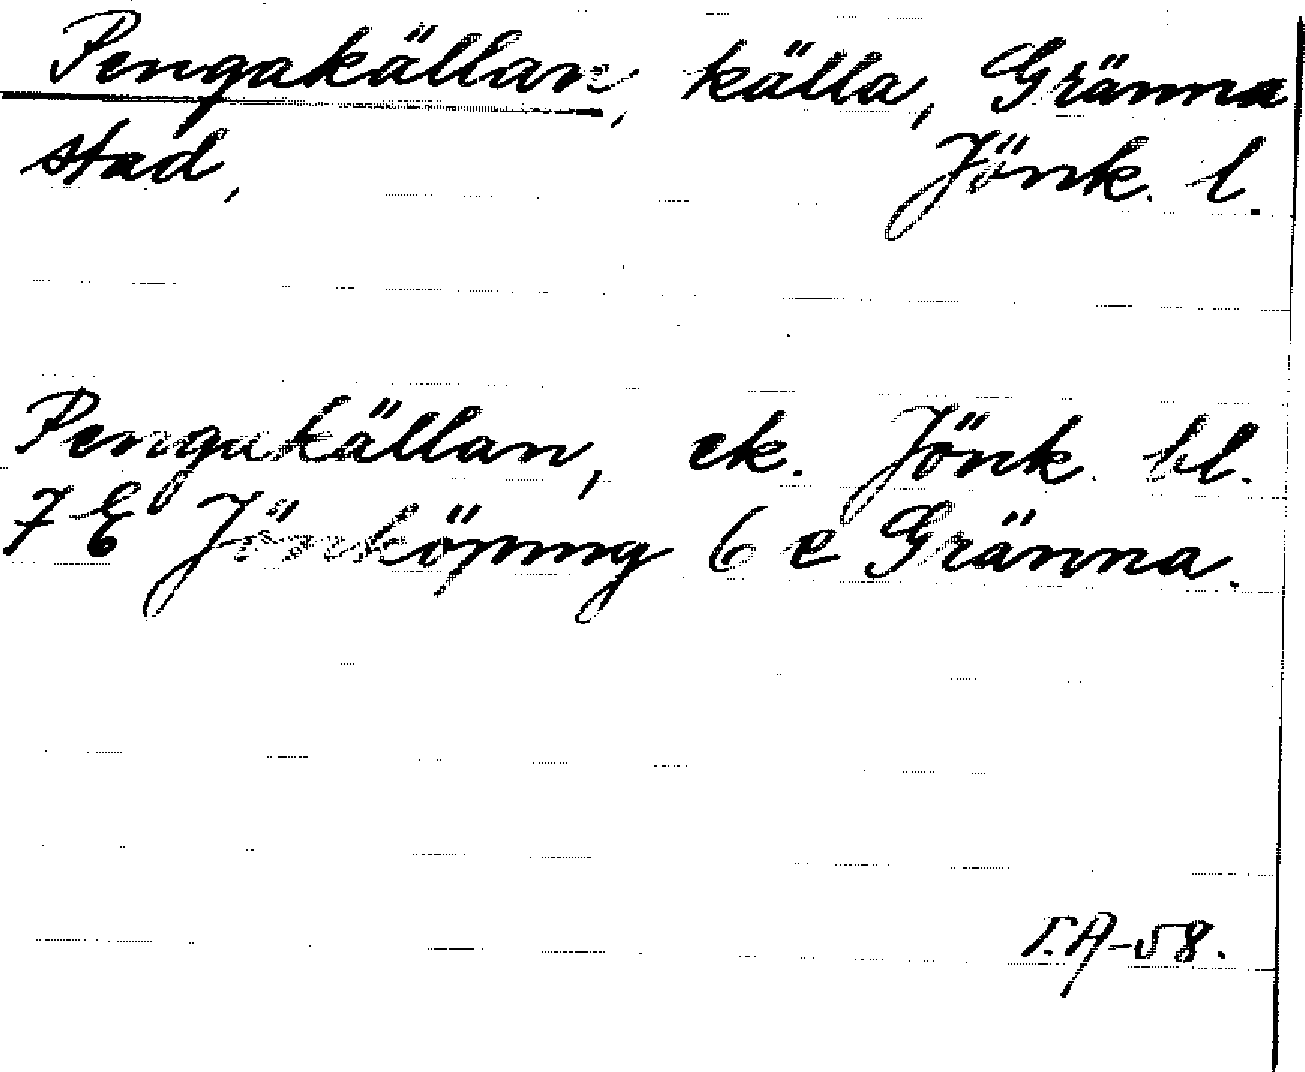 Pengakällan, källa, Gränna
stad, Jönk. l.
Pengakällan, ek. Jönk. bl.
7 E Jönköping 6 e Gränna.
T.A-58.